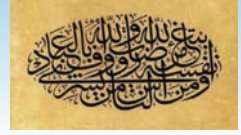 ومن الناس من يشري نفسه ابتغاء مرضات الله والله رؤوف بالعباد